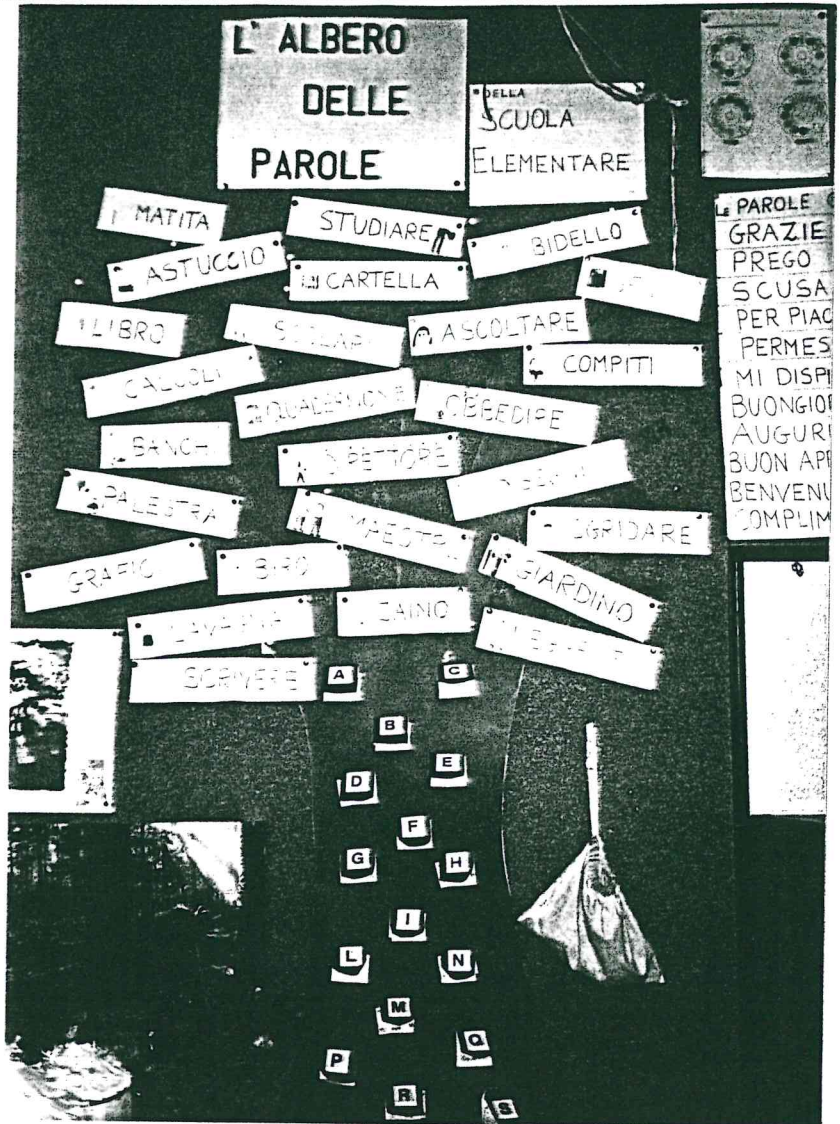 L' ALBERO
DELLE
PAROLE
DELLA
SCUOLA
ELEMENTARE
MATITA
STUDIARE
BIDELLO
ASTUCCIO
CARTELLA
LIBRO
SCOLARI
ASCOLTARE
COMPITI
CALCOLI
QUADERNONE
OBBEDIRE
BANCHI
PALESTRA
MAESTRA
SGRIDARE
GRAFICI
BIRO
GIARDINO
LAVAGNA
ZAINO
LEGGERE
SCRIVERE
LE PAROLE
GRAZIE
PREGO
SCUSA
PER PIAC
PERMES
MI DISPI
BUONGIO
AUGURI
BUON APP
BENVENU
COMPLIM
A
C
B
E
D
F
G
H
I
L
N
M
Q
P
R
S